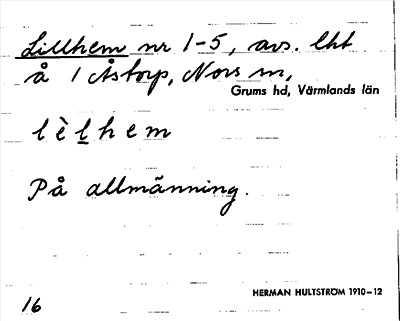 Lillhem nr 1-5, avs. lht
å 1 Åstorp, Nors sn,
Grums hd, Värmlands län
l è l h e m
På allmänning.
HERMAN HULTSTRÖM 1910-12
16